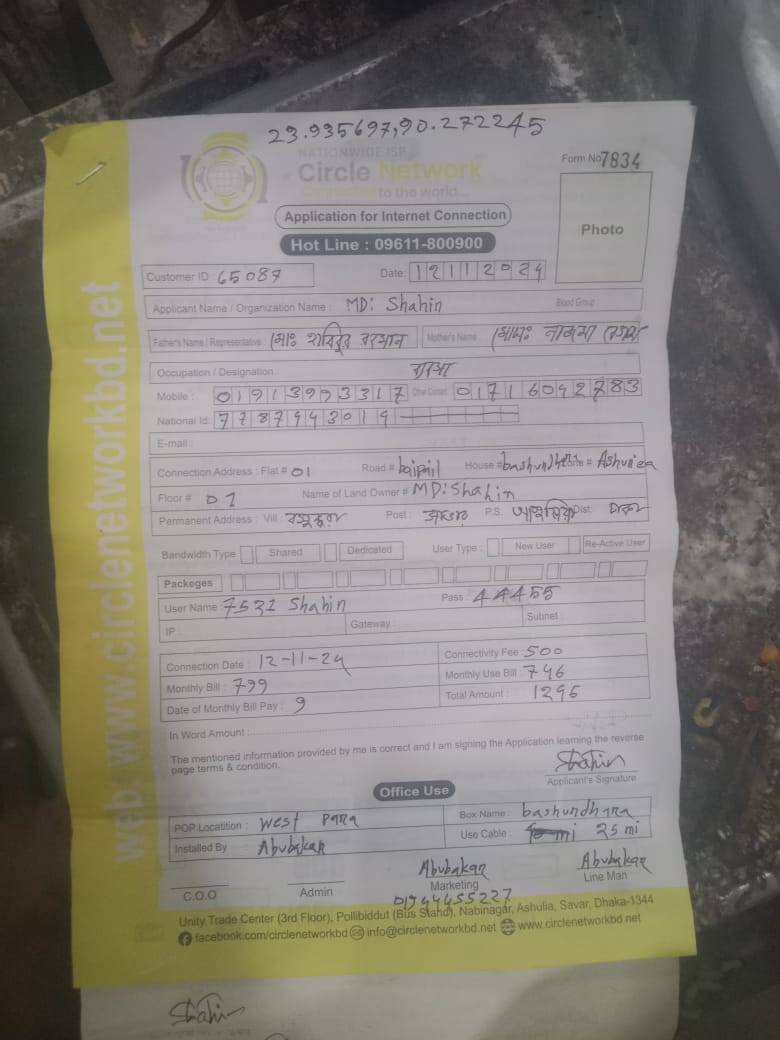 23.935697,90.272245
NATIONWIDE ISP
Circle Network
Connected to the world...
Form No 7834
Application for Internet Connection
Photo
Hot Line : 09611-800900
Customer ID : 65087 Date: 12112024
Applicant Name / Organization Name : MD: Shahin Blood Group :
Father's Name / Representative : মোঃ Mother's Name : মোসাঃ নাজমা
Occupation / Designation :
Mobile : 01913993317 Other Contact 01716092783
National Id: 7787943019
E-mail :
Connection Address : Flat # 01 Road # baipail House # bashundhara # Ashuliea
Floor # 01 Name of Land Owner # MD: Shahin
Permanent Address : Vill : Post : P.S. Dist: ঢাকা
Bandwidth Type Shared Dedicated User Type : New User Re-Active User
Packeges
User Name : 7531 Shahin Pass : 44455
IP : Gateway : Subnet :
Connection Date : 12-11-24 Connectivity Fee : 500
Monthly Bill : 799 Monthly Use Bill : 746
Date of Monthly Bill Pay : 9 Total Amount : 1296
In Word Amount :
The mentioned information provided by me is correct and I am signing the Application learning the reverse
page terms & condition.
Shahin
Applicant's Signature
Office Use
POP Locatition : West Para Box Name : bashundhara
Installed By Abubakar Use Cable : 25 mi
Abubakar Abubakar
C.O.O Admin Marketing Line Man
01944455227
Unity Trade Center (3rd Floor), Pollibiddut (Bus Stand), Nabinagar, Ashulia, Savar, Dhaka-1344
facebook.com/circlenetworkbd info@circlenetworkbd.net www.circlenetworkbd.net
web: www.circlenetworkbd.net
Shahin